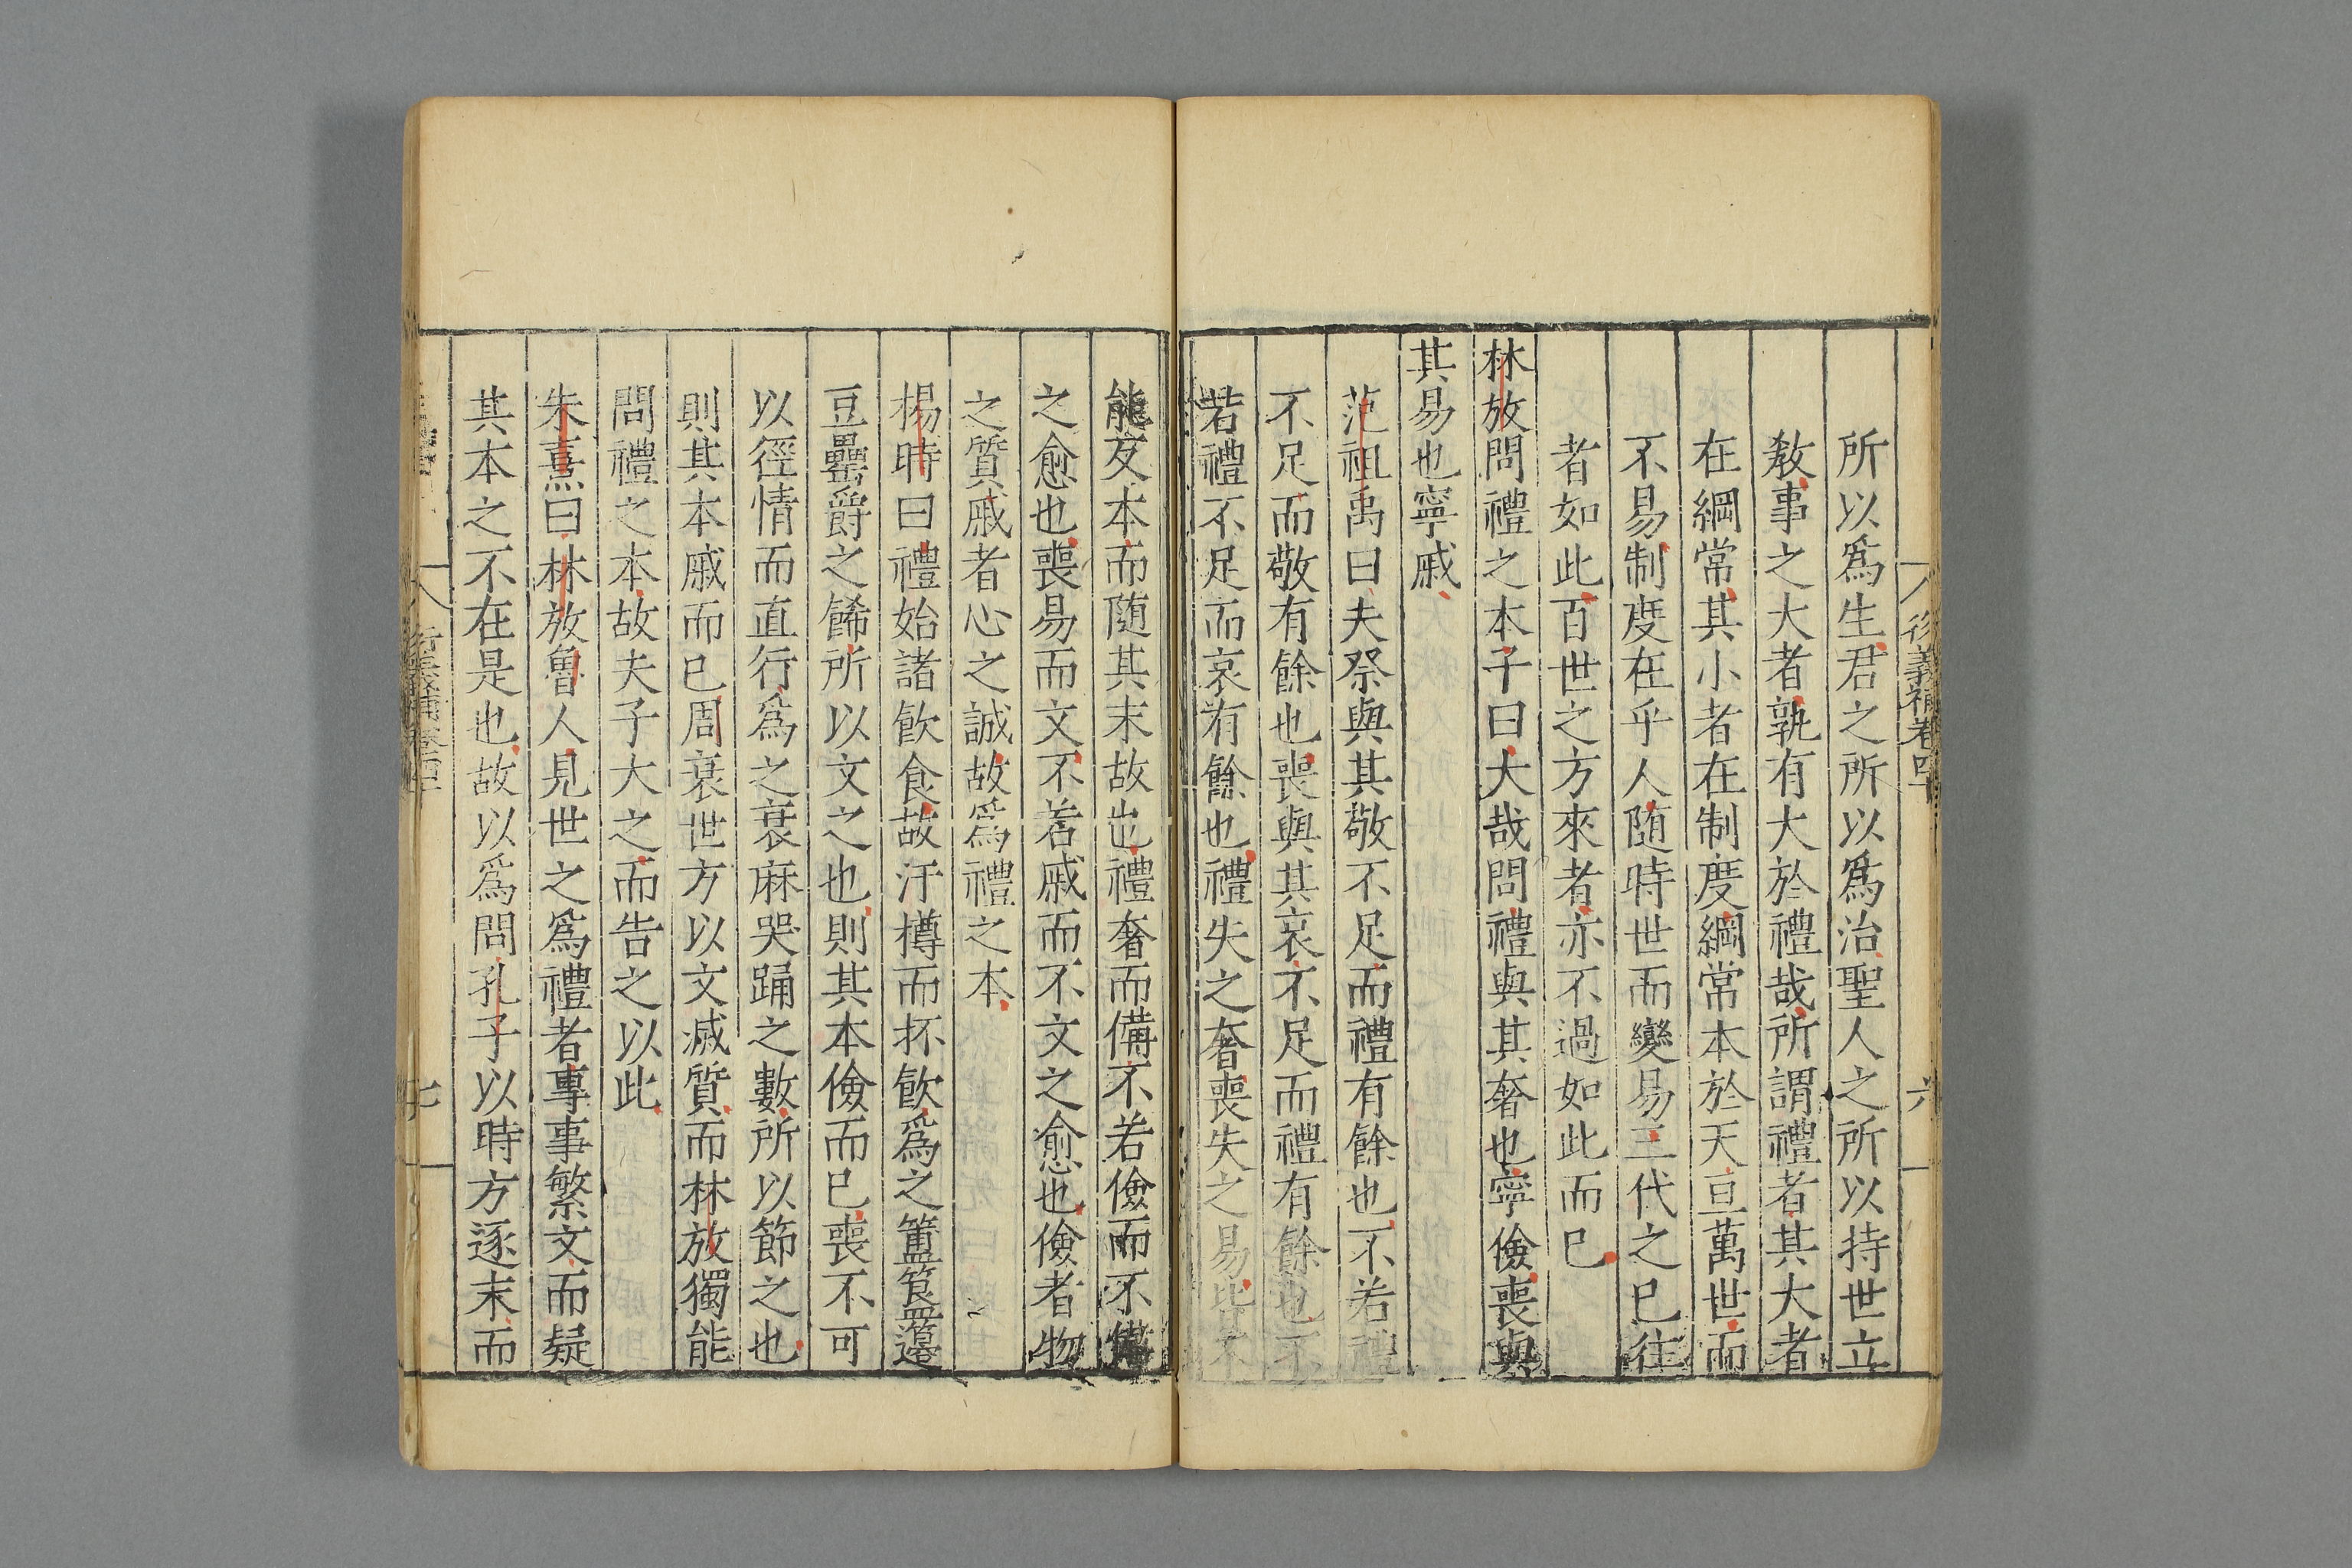 衍義補卷四十
六
所以爲生君之所以爲治聖人之所以持世立
敎事之大者孰有大於禮哉所謂禮者其大者
在綱常其小者在制度綱常本於天亘萬世而
不易制度在乎人隨時世而變易三代之已往
者如此百世之方來者亦不過如此而已
林放問禮之本子曰大哉問禮與其奢也寧儉喪與
其易也寧戚
范祖禹曰夫祭與其敬不足而禮有餘也不若禮
不足而敬有餘也喪與其哀不足而禮有餘也不
若禮不足而哀有餘也禮失之奢喪失之易皆不
能反本而隨其末故也禮奢而備不若儉而不備
之愈也喪易而文不若戚而不文之愈也儉者物
之質戚者心之誠故爲禮之本
楊時曰禮始諸飮食故汙樽而抔飮爲之簠簋籩
豆罍爵之餙所以文之也則其本儉而已喪不可
以徑情而直行爲之衰麻哭踊之數所以節之也
則其本戚而已周衰世方以文滅質而林放獨能
問禮之本故夫子大之而告之以此
朱熹曰林放魯人見世之爲禮者專事繁文而疑
其本之不在是也故以爲問孔子以時方逐末而
衍義補卷四十
七